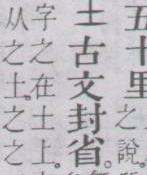 五十里
之說。
古文封省。
字之在土上。
从之土。之之